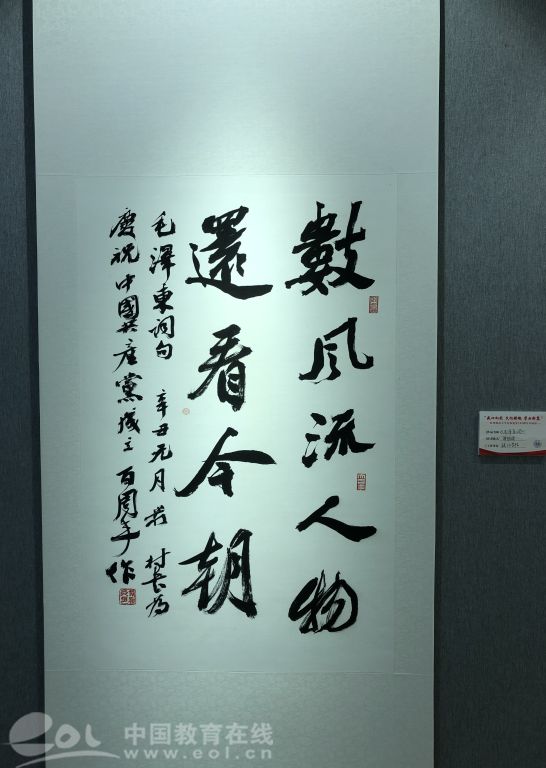 數風流人物
還看今朝
毛澤東词句 辛丑元月 村长为
慶祝中國共産黨成立百周年作
中国教育在线
eol
www.eol.cn